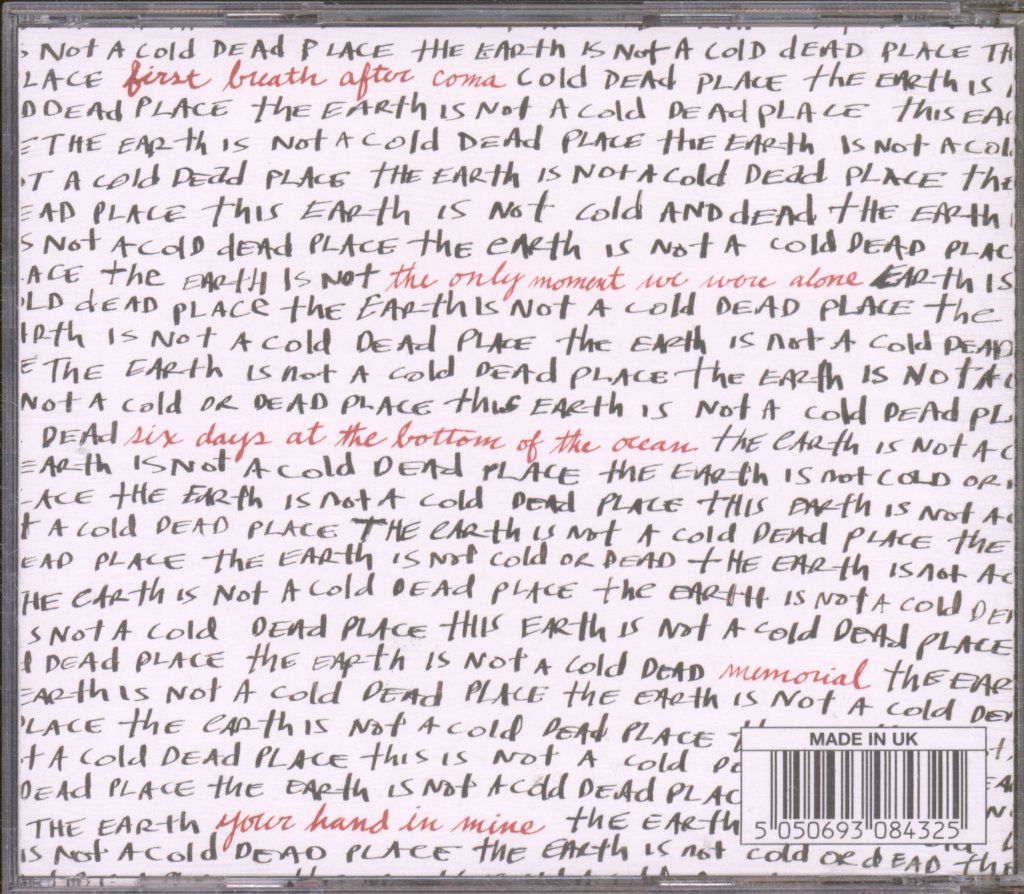 S NOT A COLD DEAD PLACE THE EARTH IS NOT A COLD DEAD PLACE TH
LACE first breath after coma COLD DEAD PLACE THE EARTH IS
D DEAD PLACE THE EARTH IS NOT A COLD DEAD PLACE THIS EA
E THE EARTH IS NOT A COLD DEAD PLACE THE EARTH IS NOT A COL
T A COLD DEAD PLACE THE EARTH IS NOT A COLD DEAD PLACE THE
EAD PLACE THIS EARTH IS NOT COLD AND DEAD THE EARTH
S NOT A COLD DEAD PLACE THE EARTH IS NOT A COLD DEAD PLAC
ACE THE EARTH IS NOT the only moment we were alone EARTH IS
OLD DEAD PLACE THE EARTH IS NOT A COLD DEAD PLACE THE
ARTH IS NOT A COLD DEAD PLACE THE EARTH IS NOT A COLD DEAD
E THE EARTH IS NOT A COLD DEAD PLACE THE EARTH IS NOT A
NOT A COLD OR DEAD PLACE THIS EARTH IS NOT A COLD DEAD PL
DEAD six days at the bottom of the ocean THE EARTH IS NOT A C
EARTH IS NOT A COLD DEAD PLACE THE EARTH IS NOT COLD OR
ACE THE EARTH IS NOT A COLD DEAD PLACE THIS EARTH IS NOT A
T A COLD DEAD PLACE THE EARTH IS NOT A COLD DEAD PLACE THE
EAD PLACE THE EARTH IS NOT COLD OR DEAD THE EARTH IS NOT A C
HE EARTH IS NOT A COLD DEAD PLACE THE EARTH IS NOT A COLD DE
S NOT A COLD DEAD PLACE THIS EARTH IS NOT A COLD DEAD PLACE
D DEAD PLACE THE EARTH IS NOT A COLD DEAD memorial THE EAR
EARTH IS NOT A COLD DEAD PLACE THE EARTH IS NOT A COLD DE
PLACE THE EARTH IS NOT A COLD DEAD PLACE
T A COLD DEAD PLACE THIS IS NOT A COLD DE
DEAD PLACE THE EARTH IS NOT A COLD DEAD PLAC
THE EARTH your hand in mine THE EARTH
IS NOT A COLD DEAD PLACE THE EARTH IS NOT COLD OR DEAD THE
MADE IN UK
5 050693 084325